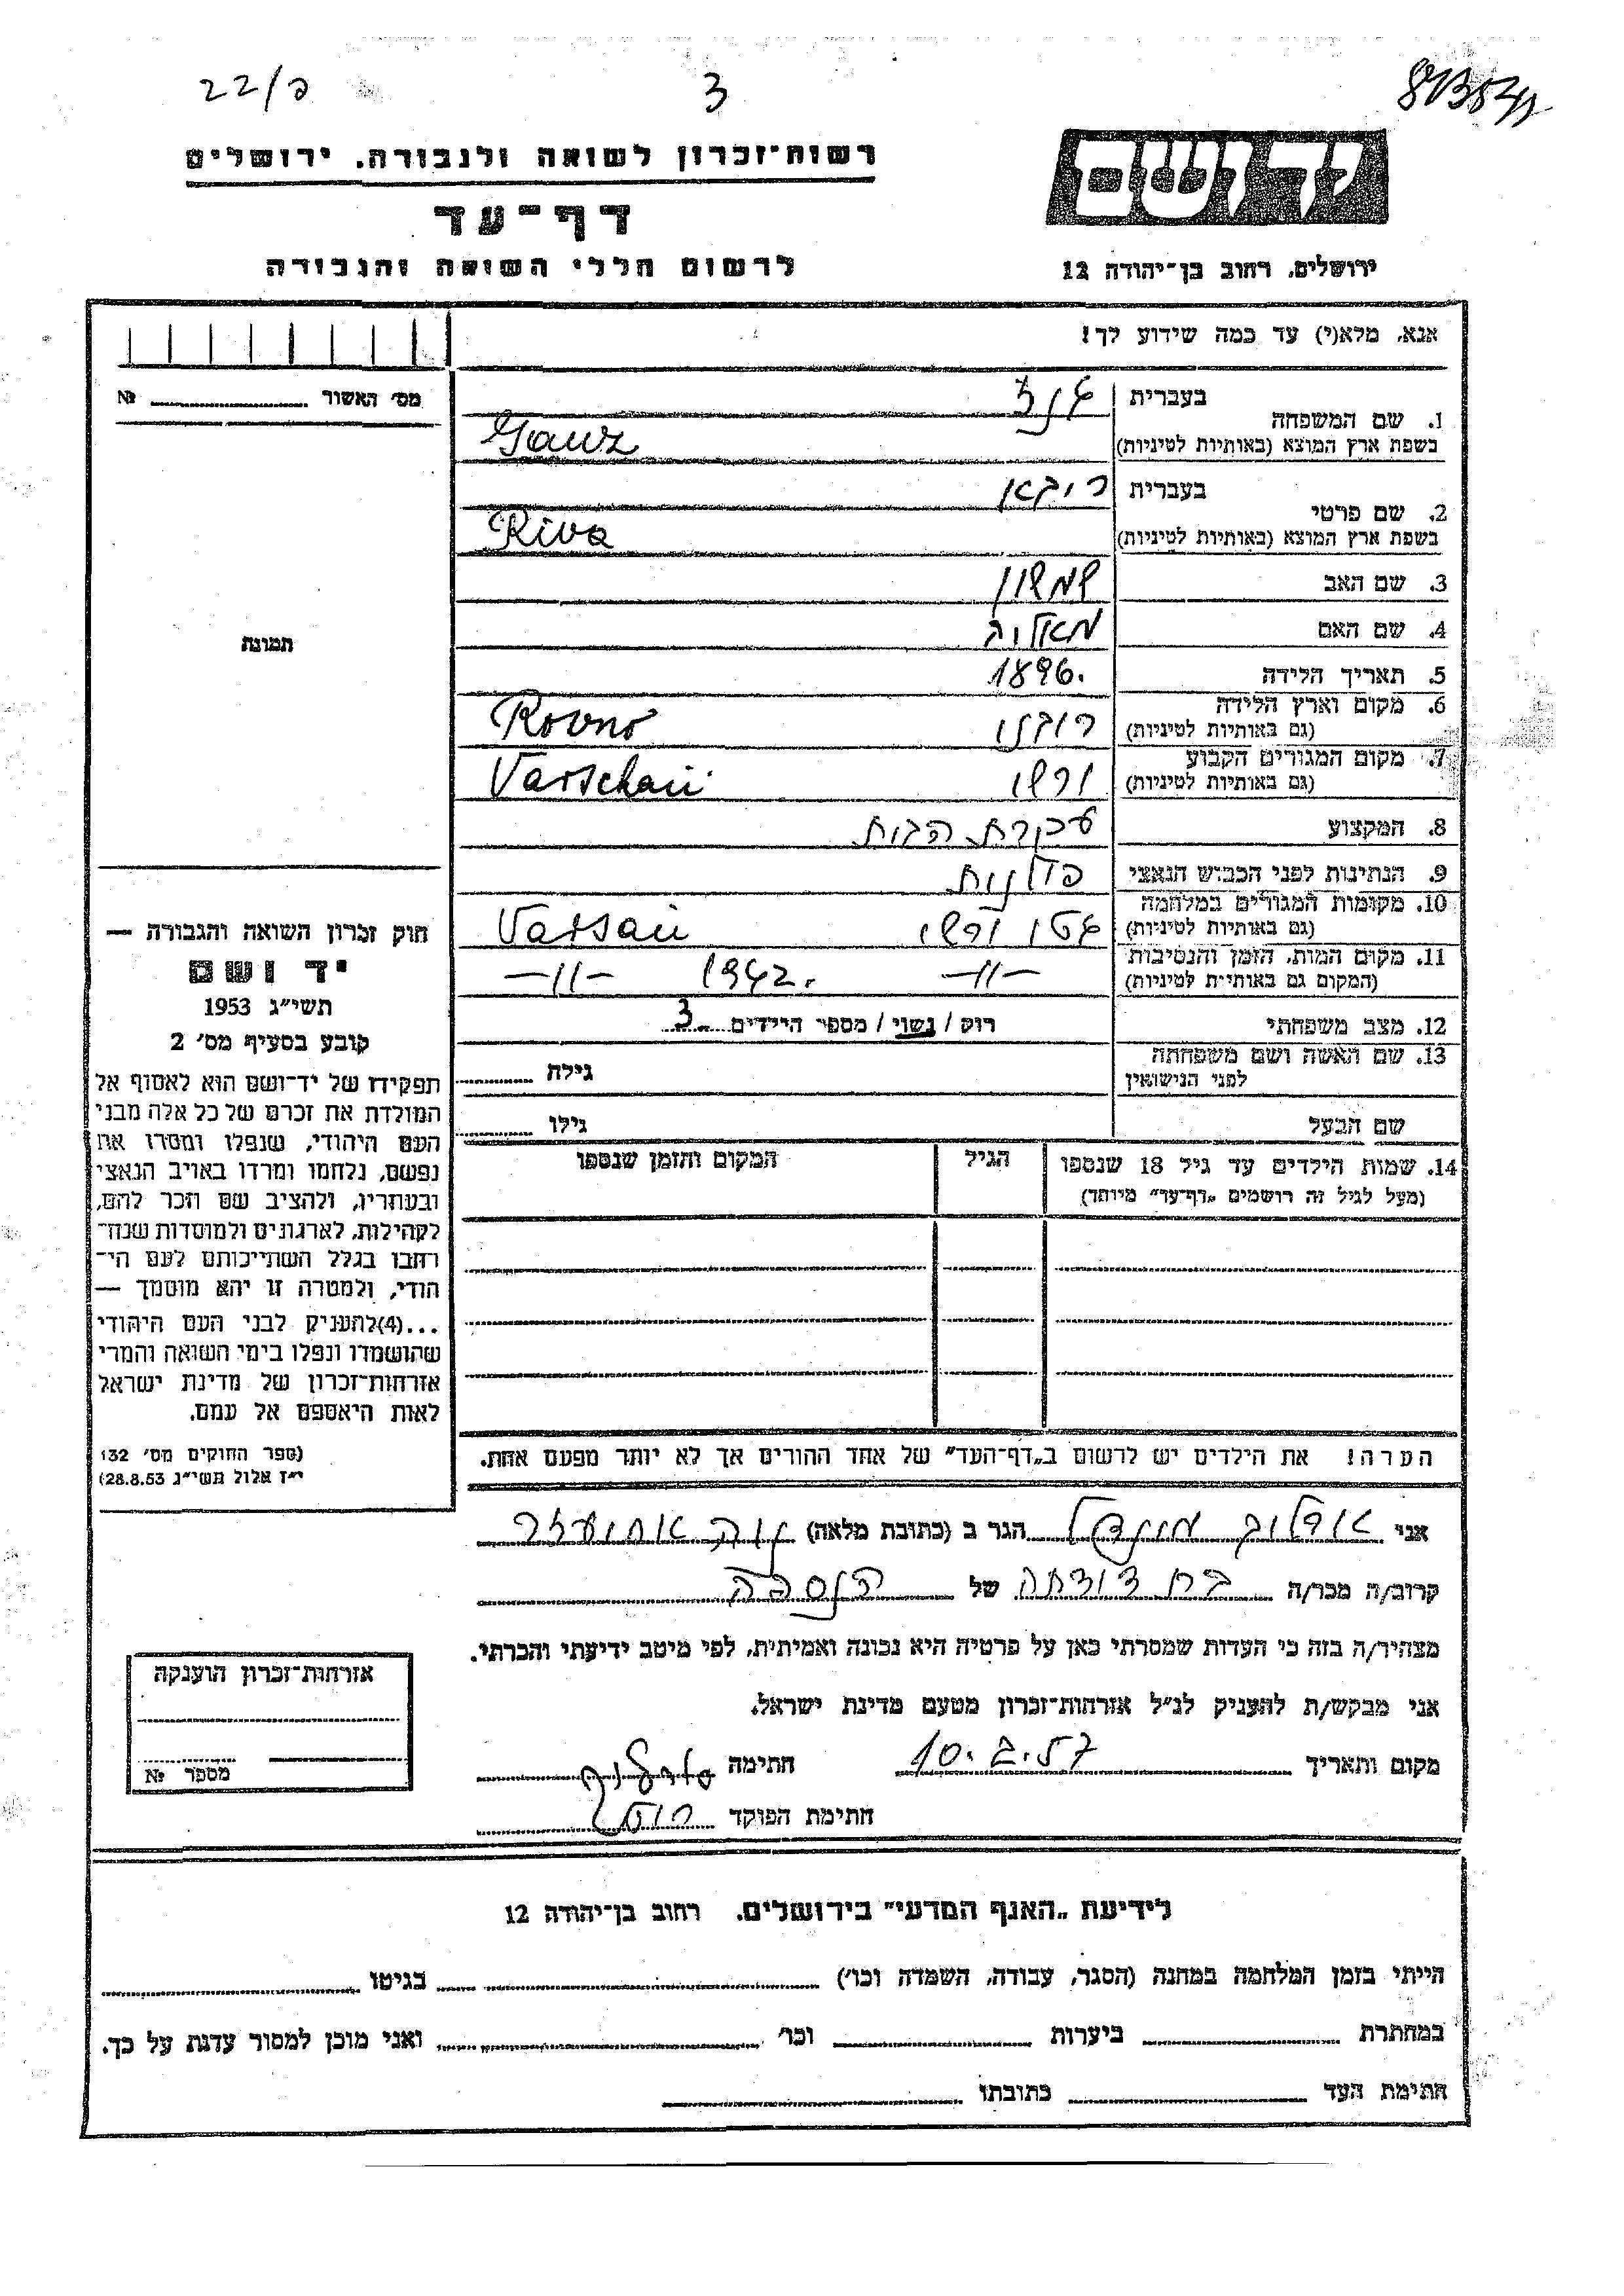 22/ס
3
רשות־זכרון לשואה ולגבורה. ירושלים
יד ושם
דף־עד
לרשום חללי השואה והגבורה
ירושלים, רחוב בן־יהודה 12
אנא, מלא(י) עד כמה שידוע לך!
מס׳ האשור № 
1. שם המשפחה
בעברית
גנץ
בשפת ארץ המוצא (באותיות לטיניות)
Ganz
2. שם פרטי
בעברית
ריבא
בשפת ארץ המוצא (באותיות לטיניות)
Riva
3. שם האב
שמשון
4. שם האם
5. תאריך הלידה
1896.
6. מקום וארץ הלידה
(גם באותיות לטיניות)
רובנו Rovno
7. מקום המגורים הקבוע
(גם באותיות לטיניות)
ורשו Varschau
8. המקצוע
עקרת הבית
9. הנתינות לפני הכבוש הנאצי
פולנית
10. מקומות המגורים במלחמה
(גם באותיות לטיניות)
גטו ורשו Varsau
11. מקום המות, הזמן והנסיבות
(המקום גם באותיות לטיניות)
—״— 1942. —״—
12. מצב משפחתי
רווק / נשוי / מספר הילדים 3
13. שם האשה ושם משפחתה
לפני הנישואין
גילה
שם הבעל
גילו
14. שמות הילדים עד גיל 18 שנספו
(מעל לגיל זה רושמים „דף־עד״ מיוחד)
הגיל
המקום והזמן שנספו
הערה! את הילדים יש לרשום ב„דף־העד״ של אחד ההורים אך לא יותר מפעם אחת.
תמונה
חוק זכרון השואה והגבורה —
יד ושם
תשי״ג 1953
קובע בסעיף מס׳ 2
תפקידו של יד־ושם הוא לאסוף אל
המולדת את זכרם של כל אלה מבני
העם היהודי, שנפלו ומסרו את
נפשם, נלחמו ומרדו באויב הנאצי
ובעוזריו, ולהציב שם וזכר להם,
לקהילות, לארגונים ולמוסדות שנח־
רבו בגלל השתייכותם לעם הי־
הודי, ולמטרה זו יהא מוסמך —
...(4) להעניק לבני העם היהודי
שהושמדו ונפלו בימי השואה והמרי
אזרחות־זכרון של מדינת ישראל
לאות היאספם אל עמם.
(ספר החוקים מס׳ 132
י״ז אלול תשי״ג 28.8.53)
אני
הגר ב (כתובת מלאה) נוה אחיעזר
קרוב/ה מכר/ה בת דודתה של הנספה
מצהיר/ה בזה כי העדות שמסרתי כאן על פרטיה היא נכונה ואמיתית, לפי מיטב ידיעתי והכרתי.
אני מבקש/ת להעניק לנ״ל אזרחות־זכרון מטעם מדינת ישראל.
מקום ותאריך 10.2.57 חתימה
חתימת הפוקד
אזרחות־זכרון הוענקה
מספר №
לידיעת „האגף המדעי״ בירושלים. רחוב בן־יהודה 12
הייתי בזמן המלחמה במחנה (הסגר, עבודה, השמדה וכו׳) בגיטו
במחתרת ביערות וכו׳ ואני מוכן למסור עדות על כך.
חתימת העד כתובתו